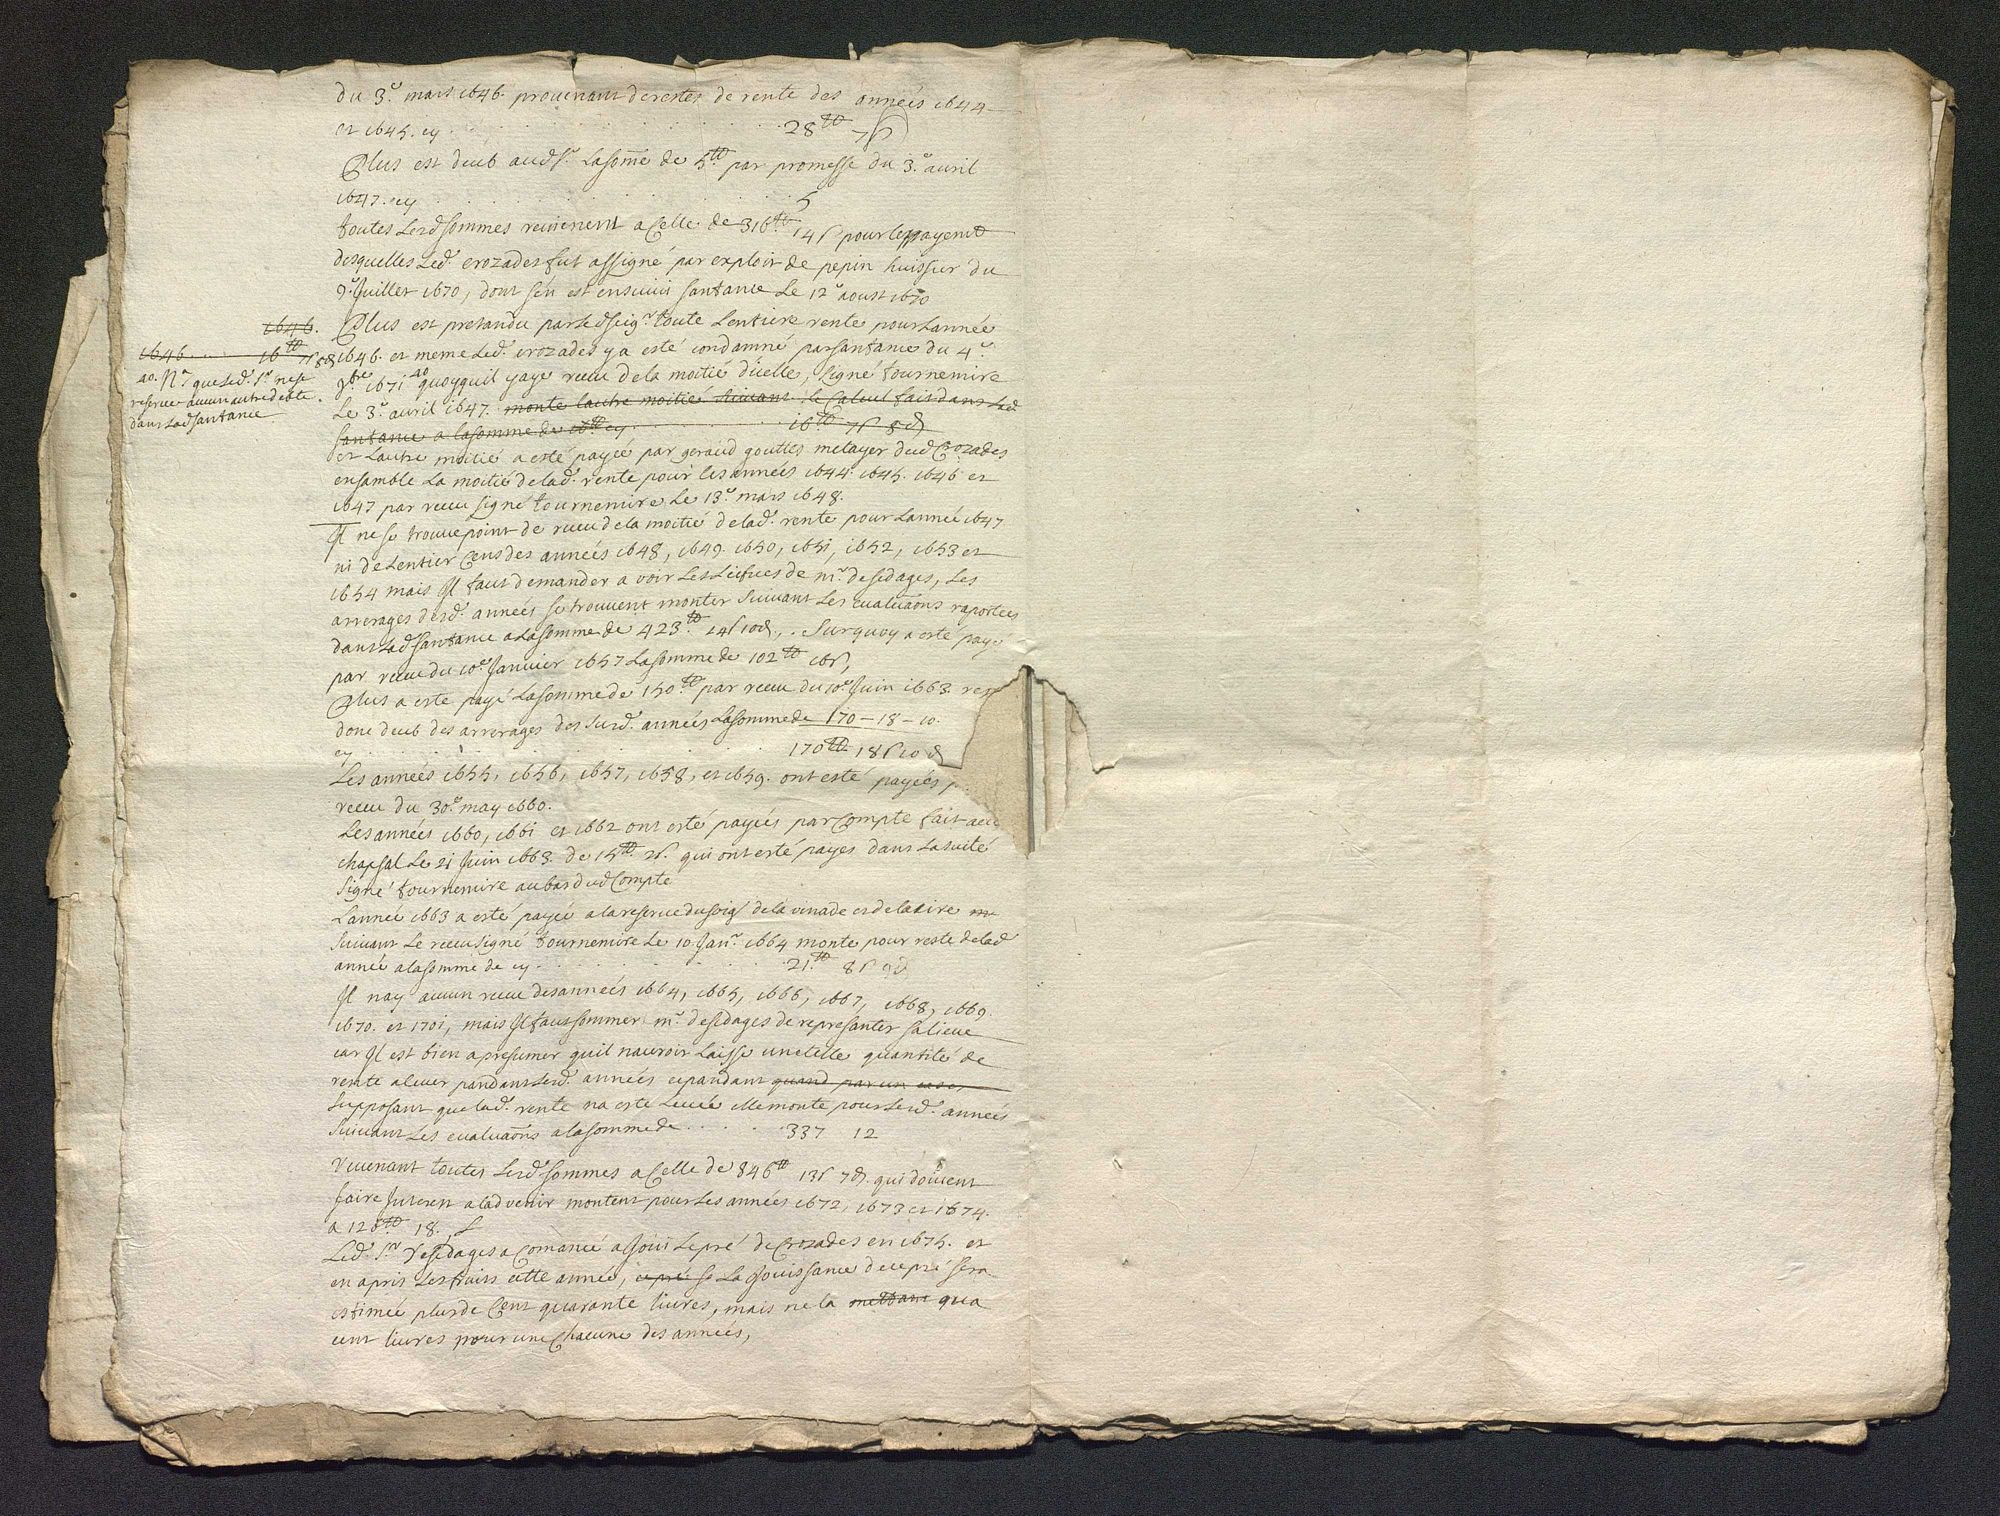 du 3.e mars 1646. prouenant de restes de rente des années 1644
et 1645. cy . . . . 28tt 7s
Plus est deub aud sr. la some de 5tt par promesse du 3.e auril
1647. cy . . . . 5
toutes lesd sommes reuienent a Celle de 316tt 14s pour le payemt
desquelles led. crozades fut assigné par exploit de pepin huissier du
9.e Juillet 1670, dont sen est ensuiui santance le 12.e aoust 1670
1646.
Plus est pretandu par led seigr. toute lentiere rente pour lannée
1646 . . . 16tt 7s 8d
1646. et meme led. crozades y a esté condamné par santance du 4.e
ao. Na. que led. sr. ne se
reserue aucun autre debte
dans lad santance
9bre 1671 ao quoyquil y aye receu de la moitié dicelle, signé tournemire
Le 3.e auril 1647. monte lautre moitié suiuant le Calcul fait dans lad.
santance a la somme de 16tt cy . . . . 16tt 7s 8d
et lautre moitié a esté payée par geraud gouttes metayer dud Crozades
ensamble la moitié de lad. rente pour les années 1644. 1645. 1646 et
1647 par receu signé tournemire le 13.e mars 1648.
Il ne se trouue point de receu de la moitié de lad. rente pour lannée 1647
ni de lentier Cens des années 1648, 1649. 1650, 1651, 1652, 1653 et
1654 mais Il faut demander a voir les lieues de mr. desedages, les
arrerages desd. années se trouuent monter suiuant les eualuaons raportees
dans lad santance a la somme de 423tt 14s 10d., . Surquoy a esté payé
par receu du 10.e Januier 1657 la somme de 102tt 16s,
Plus a esté payé la somme de 150tt par receu du 10.e Juin 1663. res
donc deub des arrerages des susd. années la somme de 170 - 18 - 10.
cy . . . . 170tt 18s 10d
Les années 1655, 1656, 1657, 1658, et 1659. ont esté payées p
receu du 30.e may 1660.
Les années 1660, 1661 et 1662 ont esté payées par Compte fait auec
chapsal le 21 Juin 1663. de 15tt 2s. qui ont esté payes dans la suite
signé tournemire au bas dud Compte
Lannée 1663 a esté payée a la reserue du seigl de la vinade et de la cire
suiuant le receu signé tournemire le 10 Janr. 1664 monte pour reste de lad
année a la somme de cy . . . . 21tt 8s 9d
Il nay aucun receu des années 1664, 1665, 1666, 1667, 1668, 1669.
1670. et 1701, mais Il faut sommer mr. desedages de representer sa lieue
car Il est bien a presumer quil nauroit laissé une telle quantité de
rente a leuer pandant lesd. années cepandant quand par un cas et
supposant que lad. rente na esté leuée elle monte pour lesd. années
suiuant les eualuaons a la somme de . . . . 337 12
Reuenant toutes lesd sommes a Celle de 846tt 13s 7d. qui doiuent
faire Interest a laduenir montent pour les années 1672, 1673 et 1674.
a 126tt 18. s
Led. sr desedages a Comancé a Jouir le pré de Crozades en 1675. et
en a pris les fruits cette année, ce pré se La Jouissance de ce pré sera
estimée plus de Cent quarante liures, mais ne la mettant qua
cent liures pour une Chacune des années,